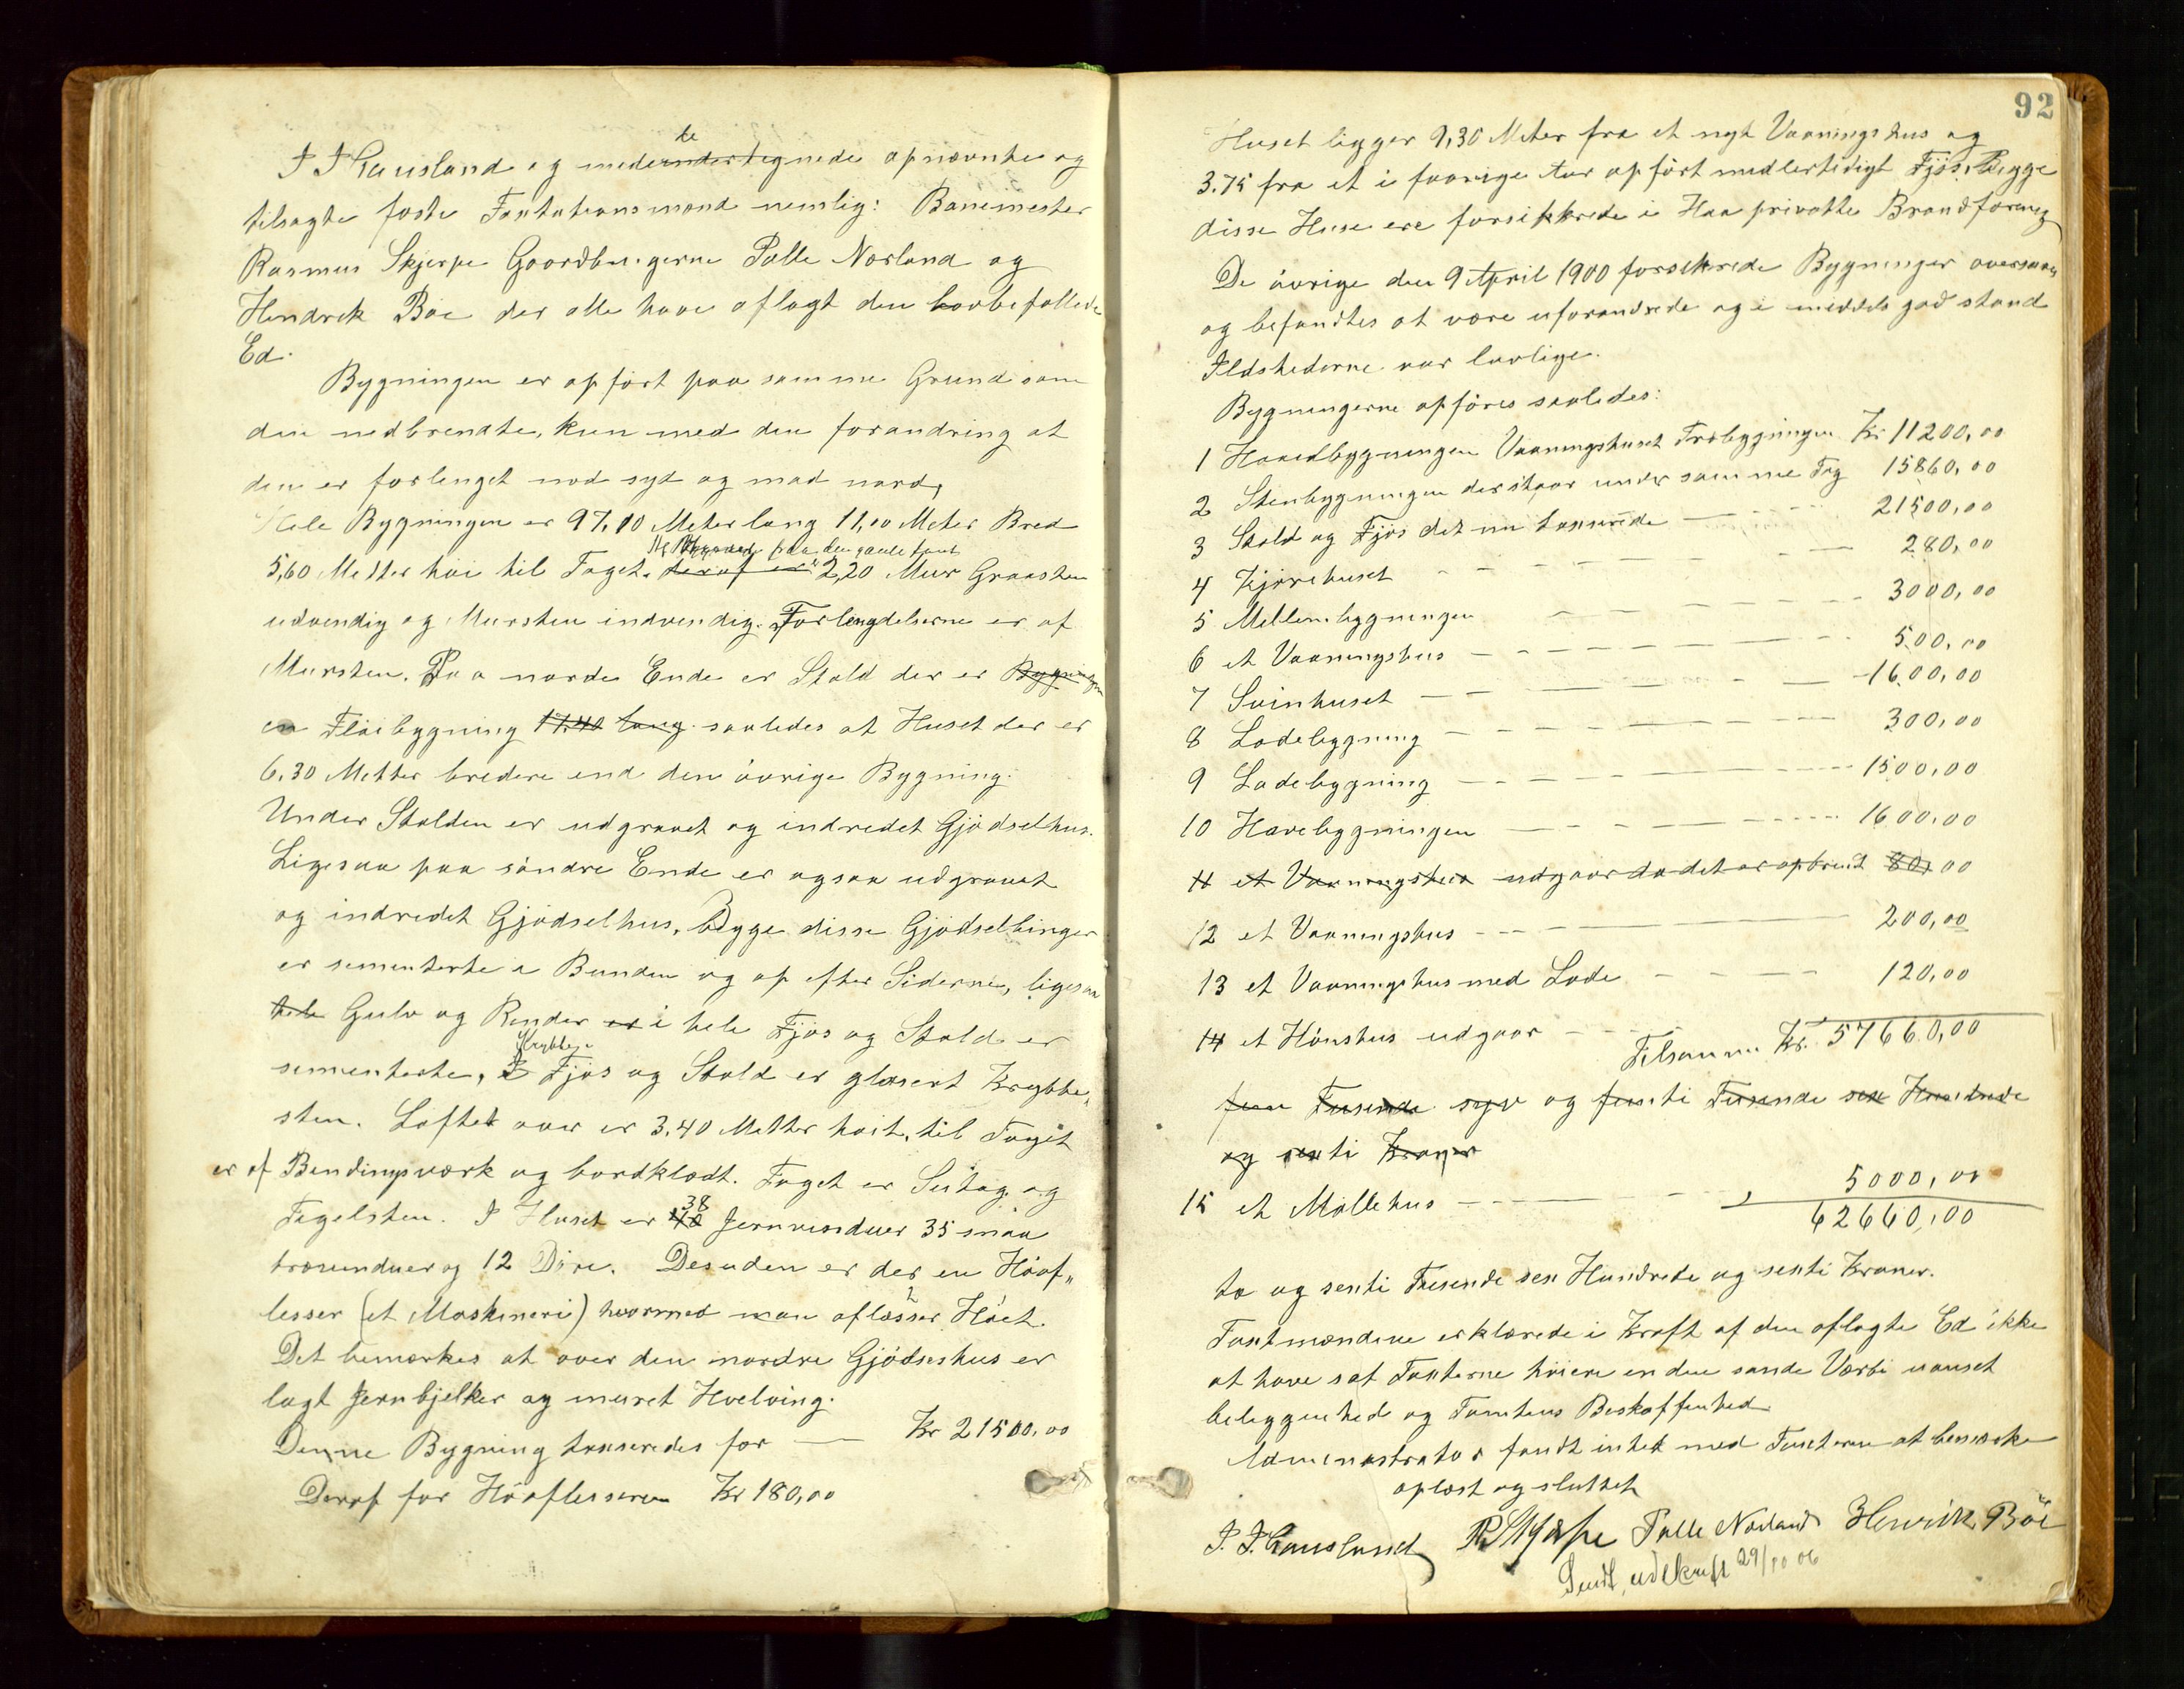 I I Gausland og mede undertegnede opnævnte og
tilsagte faste Taxtationsmænd nemlig: Banemester
Rasmus Skjerpe Gaardbrugerne Palle Norland og
Hendrek Bøe der alle have aflagt den lovbefallede
Ed.
Bygningen er opført paa samme Grund som
den nedbrendte, kun med den forandring at
den er forlenget mod syd og mod nord,
Hele Bygningen er 97,10 Meter lang 11,00 Meter Bred
paa den gamle tomt
5,60 Metter høi til Taget. deraf er 2,20 Mur Graasten
udvendig og Mursten indvendig. Forlengdelserne er af
Mursten. Paa nordre Ende er Stald der er Bygningen
en Fløibygning 17.40 lang saaledes at Huset der er
6,30 Metter bredere end den øvrige Bygning.
Under Stalden er udgravet og indredet Gjødselhus.
Ligesaa paa søndre Ende er ogsaa udgravet
og indredet Gjødselhus, begge disse Gjødselbinger
er sementerte i Bunden og op efter Siderne, ligesaa
hele Gulv og Render er i hele Fjøs og Stald er
Krybbe
sementerte, I Fjøs og Stald er glasert Krybbe„
sten. Loftet over er 3,40 Metter høit, til Taget
er af Bendingsværk og bordklædt. Taget er Sutag og
Tagelsten. I Huset er 40 38 Jernvinduer 35 smaa
trævinduer og 12 Døre. Desuden er der en Høaf„
lesser (et Maskineri) hvormed man aflæsser Høet.
Det bemærkes at over den nordre Gjødseshus er
lagt Jernbjelker og muret Hvelving.
Denne Bygning taxseredes for — Kr 21500,00
Deraf for Høaflesseren Kr 180,00
92
Huset ligger 9,30 Meter fra et nyt Vaaningshus og
3.75 fra et i forrige Aar opført midlertidigt Fjøs. Begge
disse Huse ere forsikkrede i Haa privatte Brandforening
De øvrige den 9 April 1900 forsikrede Bygninger oversaaes
og befandtes at være uforandrede og i middels god stand
Ildstederne var lovlige.
Bygningerne opføres saaledes:
1 Hovedbygningen Vaaningshuset Træbygningen Kr 11200,00
2 Stenbygningen der staar under samme Tag 15860,00
3 Stald og Fjøs det nu taxserede — 21500,00
4 Kjørehuset — 280,00
5 Mellembygningen — 3000,00
6 et Vaaningshus — 500,00
7 Svinhuset — 1600,00
8 Ladebygning — 300,00
9 Ladebygning — 1500,00
10 Havebygningen — 1600,00
11 et Vaaningshus udgaar da det er opbrendt 80,00
12 et Vaaningshus — 200,00
13 et Vaaningshus med Lade — 120,00
14 et Hønshus udgaar —
Tilsammen Kr. 57660,00
fem Tusende syv og femti Tusende sex Hundrede
og sexti Kroner
15 et Møllehus — 5000,00
62660,00
to og sexti Tusende sex Hundrede og sexti Kroner.
Taxtmændene erklærede i Kraft af den aflagte Ed ikke
at have sat Taxterne høiere en den sande Værdi uanset
beliggenhed og Tomtens Beskaffenhed
Administrator fandt intet med Taxterne at bemerke
oplæst og sluttet
I. I. Gausland R Skjærpe Palle Norland Henrik Böe
Sendt udskrift 29/10 06